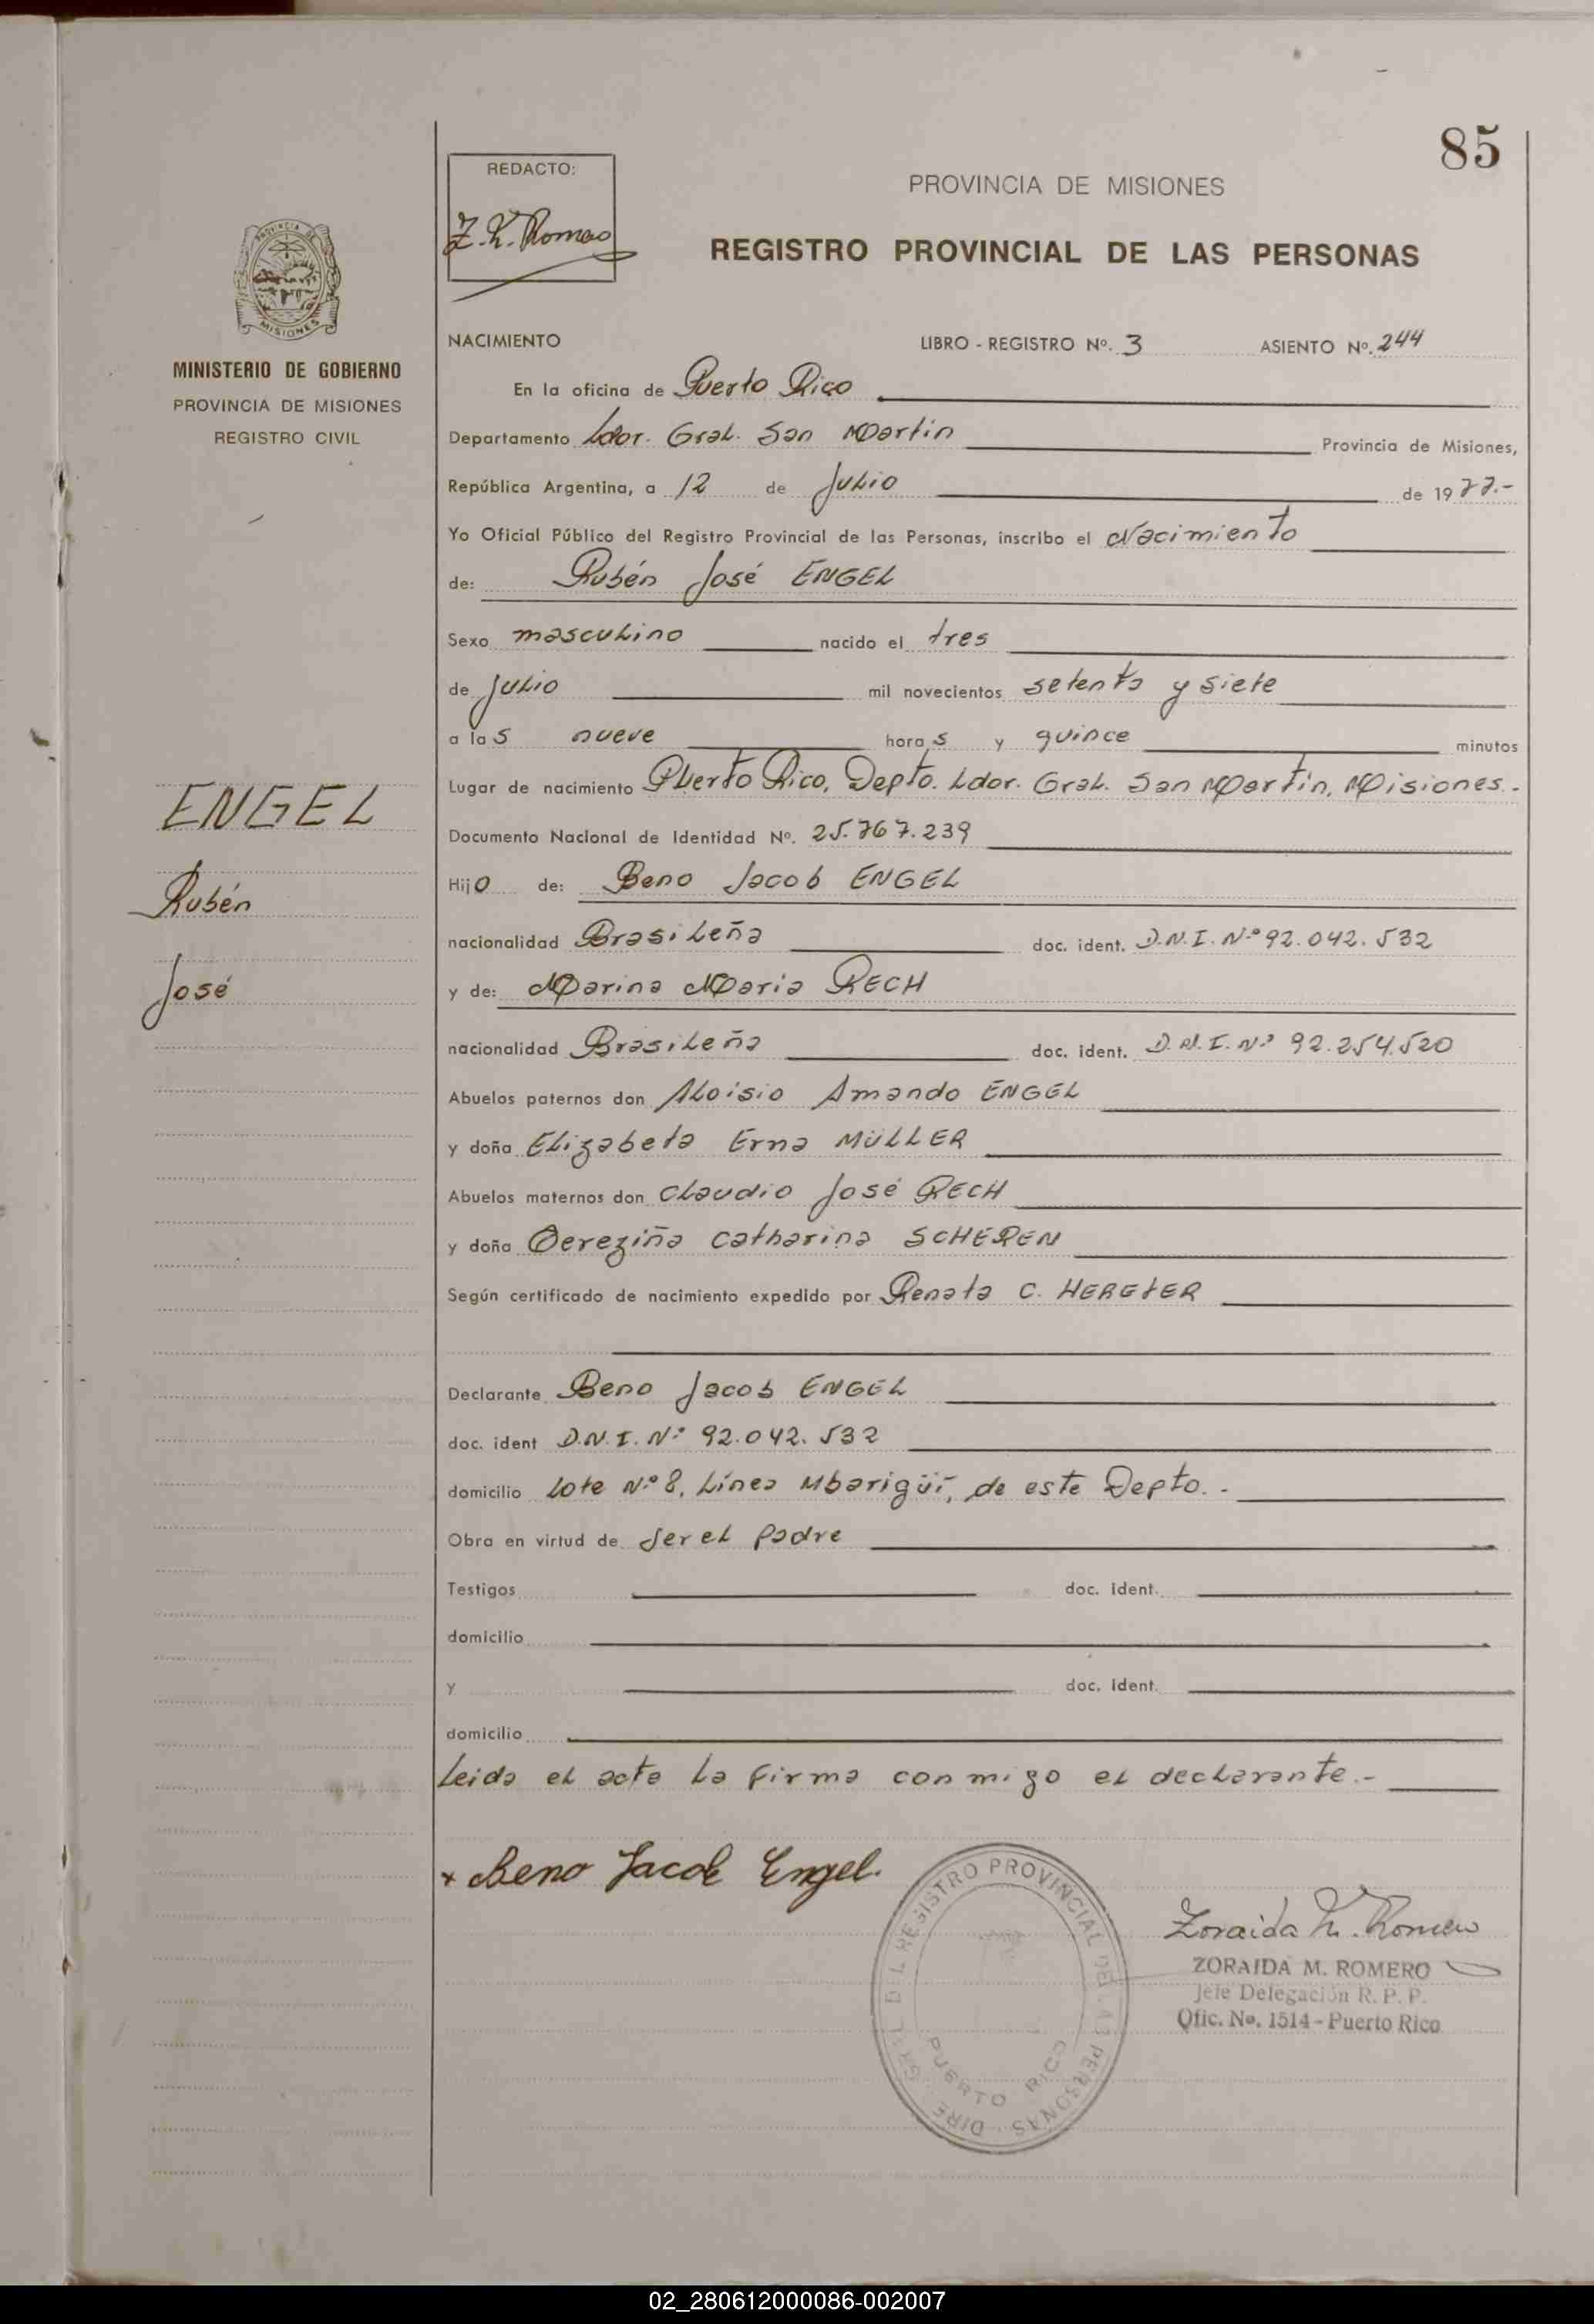 85
REDACTO:
Z. M. Romero
PROVINCIA DE MISIONES
REGISTRO PROVINCIAL DE LAS PERSONAS
PROVINCIA DE
MISIONES
MINISTERIO DE GOBIERNO
PROVINCIA DE MISIONES
REGISTRO CIVIL
NACIMIENTO LIBRO - REGISTRO Nº. 3 ASIENTO Nº. 244
En la oficina de Puerto Rico
Departamento Ldor. Gral. San Martín Provincia de Misiones,
República Argentina, a 12 de Julio de 1977.-
Yo Oficial Público del Registro Provincial de las Personas, inscribo el Nacimiento
de: Rubén José ENGEL
Sexo masculino nacido el tres
de Julio mil novecientos setenta y siete
a las nueve horas y quince minutos
Lugar de nacimiento Puerto Rico, Depto. Ldor. Gral. San Martín, Misiones.-
ENGEL
Rubén
José
Documento Nacional de Identidad Nº. 25.767.239
Hijo de: Beno Jacob ENGEL
nacionalidad Brasileña doc. ident. D.N.I. Nº 92.042.532
y de: Marina Maria RECH
nacionalidad Brasileña doc. ident. D.N.I. Nº 92.254.520
Abuelos paternos don Aloisio Amando ENGEL
y doña Elizabeta Erna MÜLLER
Abuelos maternos don Claudio José RECH
y doña Oereziña Catharina SCHEREN
Según certificado de nacimiento expedido por Renata C. HERGTER
Declarante Beno Jacob ENGEL
doc. ident D.N.I. Nº 92.042.532
domicilio Lote Nº 8, Línea Mbarigüí, de este Depto.-
Obra en virtud de ser el padre
Testigos doc. ident.
domicilio
y doc. ident.
domicilio
Leida el acta la firma conmigo el declarante.-
+ Beno Jacob Engel.
DIRE. GRAL DEL REGISTRO PROVINCIAL DE LAS PERSONAS
PUERTO RICO
Zoraida M. Romero
ZORAIDA M. ROMERO
Jefe Delegación R. P. P.
Ofic. No. 1514 - Puerto Rico
02_280612000086-002007